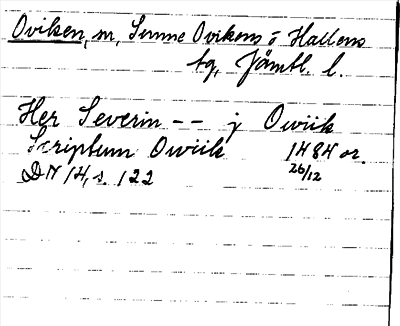 Oviken, sn, Sunne Ovikens o Hallens
tg, Jämtl. l.
Her Severin -- j Owiik
Scriptum Owiik 1484 or.
DN 14, s. 122 26/12